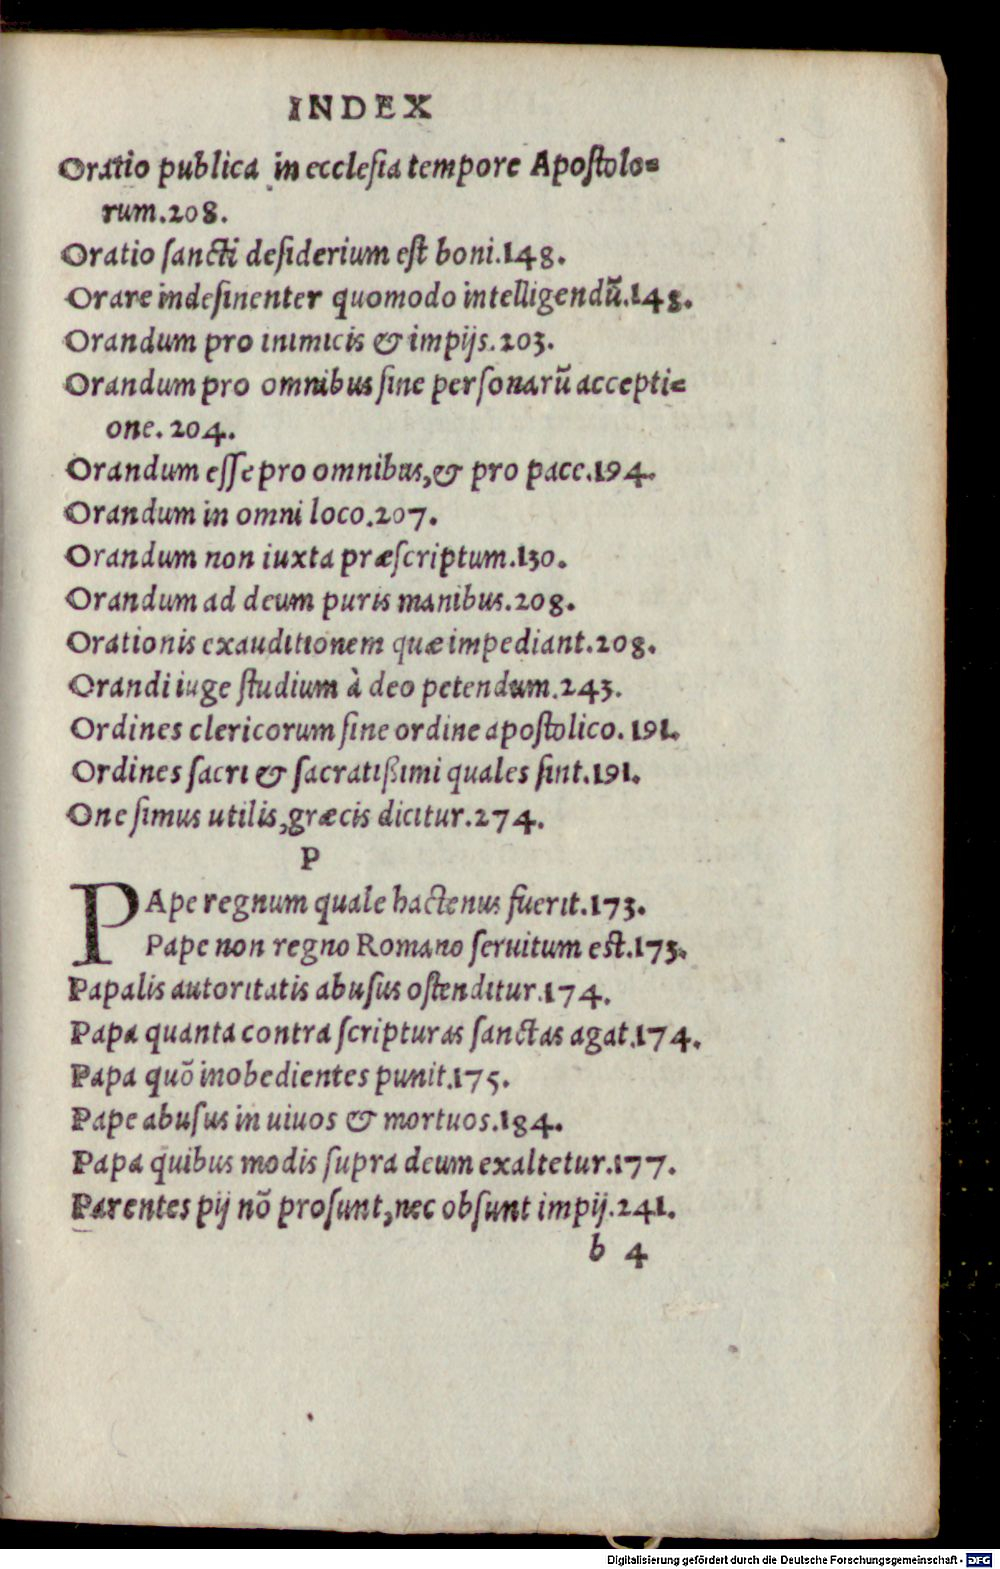 INDEX
Oratio publica in ecclesia tempore Apostolo=
rum.208.
Oratio sancti desiderium est boni.148.
Orare indesinenter quomodo intelligendũ.148.
Orandum pro inimicis & impijs.203.
Orandum pro omnibus sine personarũ accepti=
one.204.
Orandum esse pro omnibus,& pro pace.194.
Orandum in omni loco.207.
Orandum non iuxta præscriptum.130.
Orandum ad deum puris manibus.208.
Orationis exauditionem quæ impediant.208.
Orandi iuge studium à deo petendum.243.
Ordines clericorum sine ordine apostolico.191.
Ordines sacri & sacratißimi quales sint.191.
Onesimus utilis,græcis dicitur.274.
P
PApe regnum quale hactenus fuerit.173.
Pape non regno Romano seruitum est.173.
Papalis autoritatis abusus ostenditur.174.
Papa quanta contra scripturas sanctas agat.174.
Papa quõ inobedientes punit.175.
Pape abusus in uiuos & mortuos.184.
Papa quibus modis supra deum exaltetur.177.
Parentes pij nõ prosunt,nec obsunt impij.241.
b 4
Digitalisierung gefördert durch die Deutsche Forschungsgemeinschaft - DFG